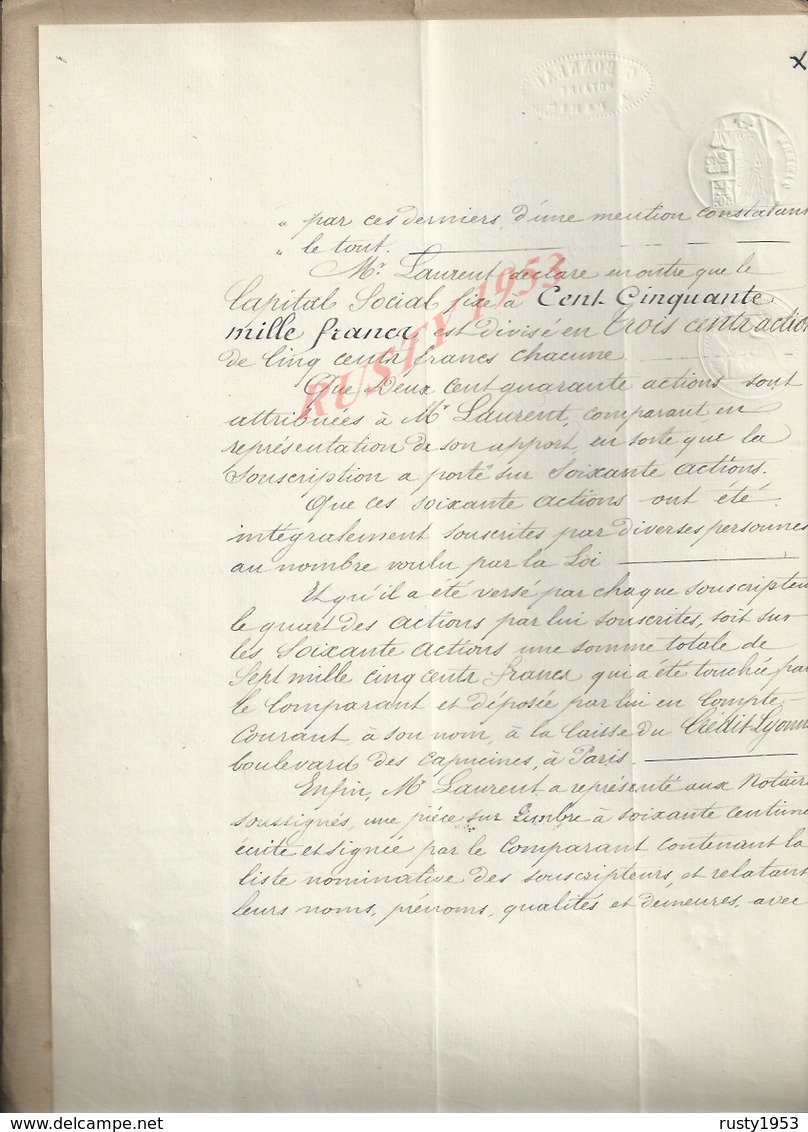 BONNEAU
NOTAIRE
PARIS
x
" par ces derniers, d'une mention constatant
" le tout.
Mr Laurent déclare en outre que le
Capital Social fixé à Cent Cinquante
mille francs, est divisé en trois cents action
de Cinq cents francs chacune
Que Deux cent quarante actions sont
attribuées à Mr Laurent, comparant, en
représentation de son apport, en sorte que la
Souscription a porté sur Soixante actions.
Que ces soixante actions ont été
intégralement souscrites par diverses personnes
au nombre voulu par la Loi
Et qu'il a été versé par chaque souscripteu
le quart des actions par lui souscrites, soit sur
les Soixante actions une somme totale de
Sept mille cinq cents francs qui a été touchée par
le Comparant et déposée par lui en Compte-
Courant, à son nom, à la Caisse du Crédit Lyonn
boulevard des Capucines, à Paris.
Enfin, Mr Laurent a représenté aux Notaire
soussignés, une pièce sur timbre à soixante centime
écrite et signée par le Comparant contenant la
liste nominative des souscripteurs, et relatant
leurs noms, prénoms, qualités et demeures, avec
RUSTY 1953
delcampe.net
rusty1953